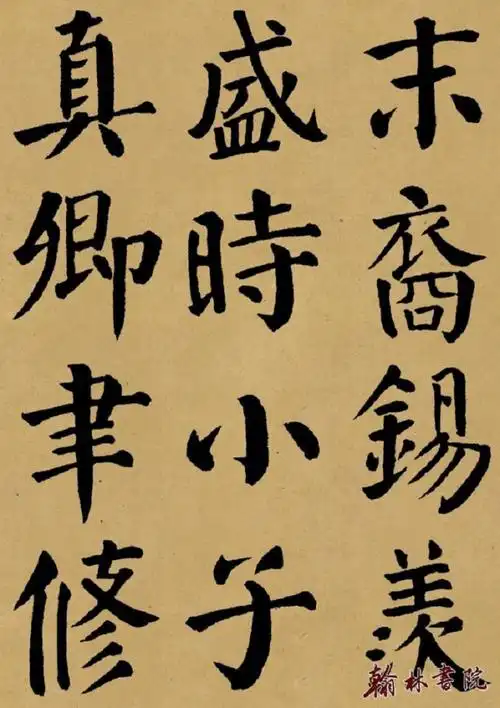 末裔錫羨
盛時小子
真卿聿修
翰林書院